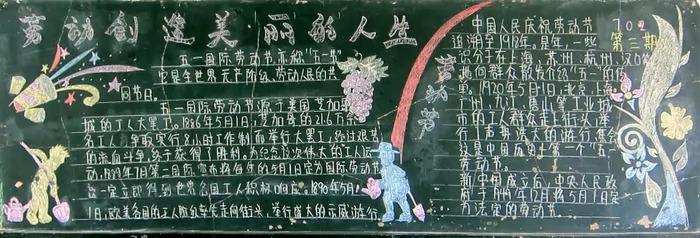 劳动创造美丽的人生
五一国际劳动节,亦称"五一节"
它是全世界无产阶级、劳动人民的共
同节日。
五一国际劳动节源于美国芝加哥
城的工人大罢工。1886年5月1日,芝加哥的21.6万余
名工人争取实行8小时工作制而举行大罢工,经过艰苦
的流血斗争,终于获得了胜利。为纪念这次伟大的工人运
动,1889年7月第二国际宣布将每年的5月1日定为国际劳动节
这一定立即得到世界各国工人积极响应。1890年5月
1日,欧美各国的工人阶级率先走向街头,举行盛大的示威游行
劳动节
中国人民庆祝劳动节
追溯至1918年。是年,一些
识分子在上海、苏州、杭州、汉口
向群众散发介绍"五一"的传
单。1920年5月1日,北京、上海
广州、九江、唐山等工业城
市的工人群众走上街头,举
行了声势浩大的游行集会
这是中国历史上第一个"五一"
劳动节。
新中国成立后,中央人民政
府于1949年12月将5月1日定
为法定的劳动节。
702
第三期